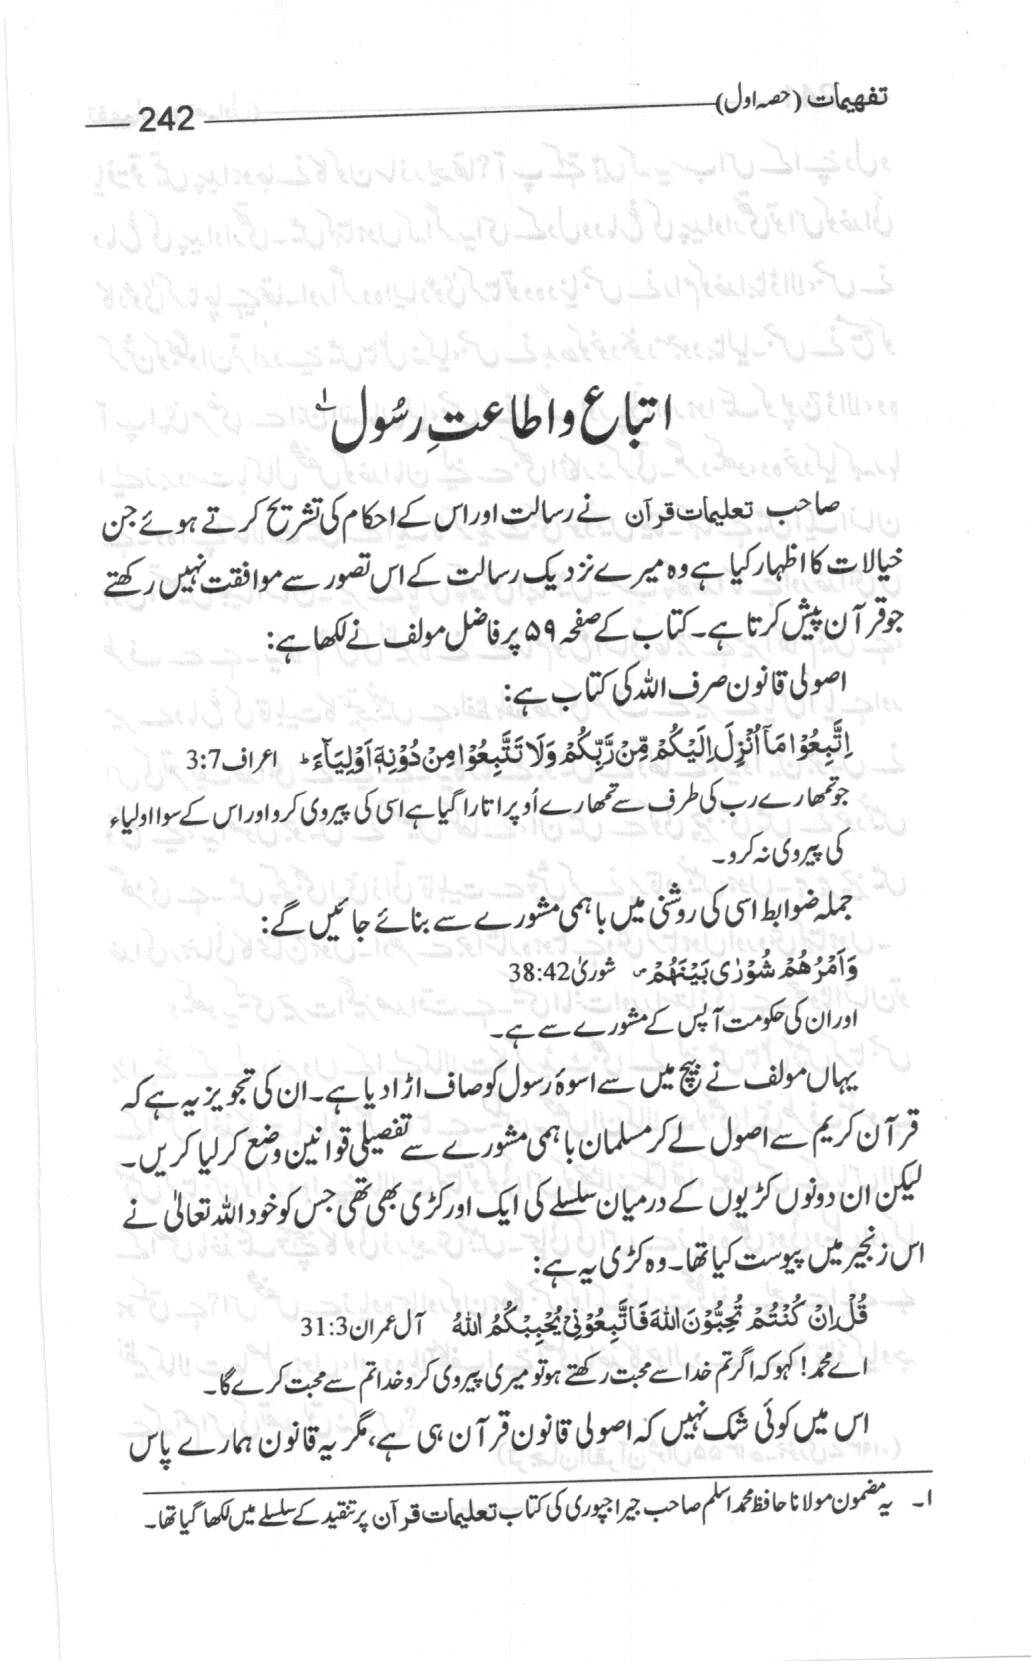 تفہیمات (حصہ اول)
242
اتباع و اطاعتِ رسُول ؎۱
صاحب تعلیمات قرآن نے رسالت اور اس کے احکام کی تشریح کرتے ہوئے جن
خیالات کا اظہار کیا ہے وہ میرے نزدیک رسالت کے اس تصور سے موافقت نہیں رکھتے
جو قرآن پیش کرتا ہے۔ کتاب کے صفحہ ۵۹ پر فاضل مولف نے لکھا ہے:
اصولی قانون صرف اللہ کی کتاب ہے:
اِتَّبِعُوْا مَآ اُنْزِلَ اِلَيْكُمْ مِّنْ رَّبِّكُمْ وَلَا تَتَّبِعُوْا مِنْ دُوْنِهٖٓ اَوْلِيَآءَ ط اعراف 3:7
جو تمھارے رب کی طرف سے تمھارے اُوپر اتارا گیا ہے اسی کی پیروی کرو اور اس کے سوا اولیاء
کی پیروی نہ کرو۔
جملہ ضوابط اسی کی روشنی میں باہمی مشورے سے بنائے جائیں گے:
وَاَمْرُهُمْ شُوْرٰى بَيْنَهُمْ ص شوریٰ 38:42
اور ان کی حکومت آپس کے مشورے سے ہے۔
یہاں مولف نے بیچ میں سے اسوۂ رسول کو صاف اڑا دیا ہے۔ ان کی تجویز یہ ہے کہ
قرآن کریم سے اصول لے کر مسلمان باہمی مشورے سے تفصیلی قوانین وضع کر لیا کریں۔
لیکن ان دونوں کڑیوں کے درمیان سلسلے کی ایک اور کڑی بھی تھی جس کو خود اللہ تعالیٰ نے
اس زنجیر میں پیوست کیا تھا۔ وہ کڑی یہ ہے:
قُلْ اِنْ كُنْتُمْ تُحِبُّوْنَ اللهَ فَاتَّبِعُوْنِيْ يُحْبِبْكُمُ اللهُ آل عمران 31:3
اے محمدؐ! کہو کہ اگر تم خدا سے محبت رکھتے ہو تو میری پیروی کرو خدا تم سے محبت کرے گا۔
اس میں کوئی شک نہیں کہ اصولی قانون قرآن ہی ہے، مگر یہ قانون ہمارے پاس
۱۔ یہ مضمون مولانا حافظ محمد اسلم صاحب جیراجپوری کی کتاب تعلیمات قرآن پر تنقید کے سلسلے میں لکھا گیا تھا۔